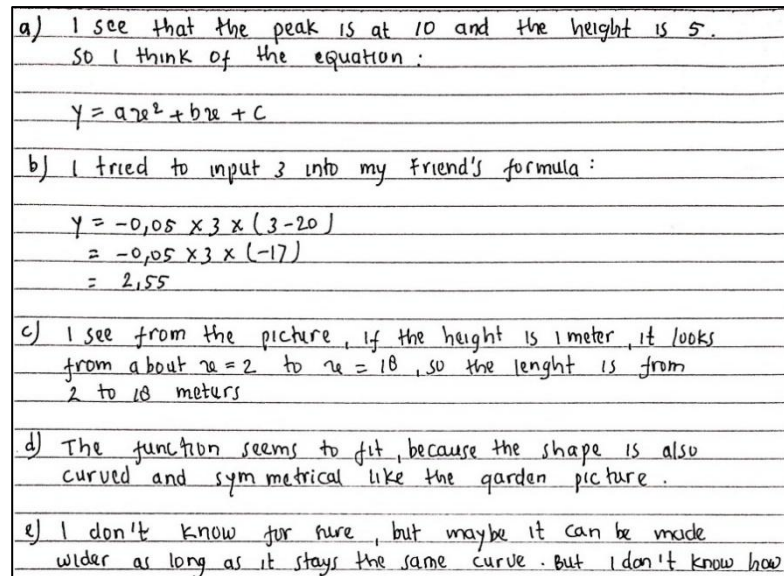 a) I see that the peak is at 10 and the height is 5.
so I think of the equation :
y = ax² + bx + c
b) I tried to input 3 into my friend's formula :
y = -0,05 x 3 x (3-20)
= -0,05 x 3 x (-17)
= 2,55
c) I see from the picture, if the height is 1 meter, it looks
from about x = 2 to x = 18, so the lenght is from
2 to 18 meturs
d) The function seems to fit, because the shape is also
curved and symmetrical like the garden picture.
e) I don't know for sure, but maybe it can be made
wider as long as it stays the same curve. But I don't know how